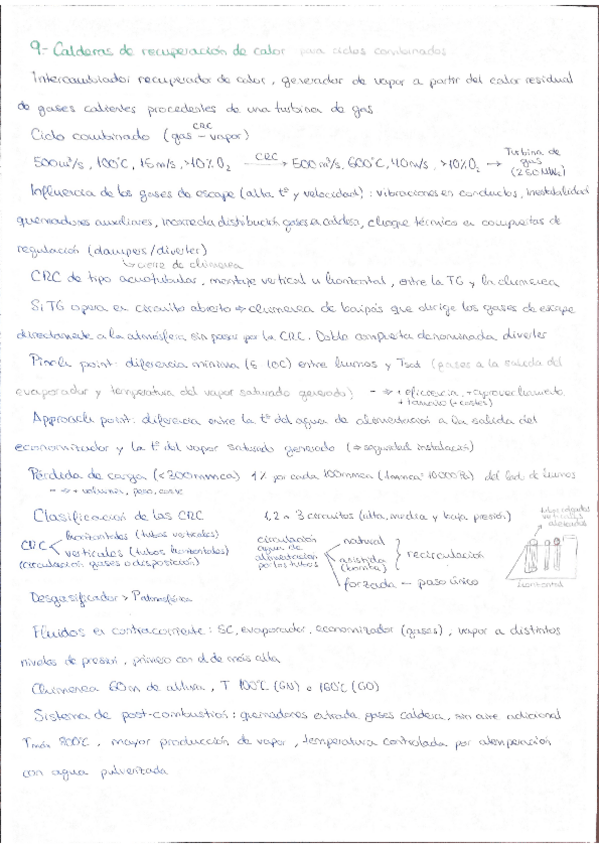 9- Calderas de recuperación de calor para ciclos combinados
Intercambiador recuperador de calor, generador de vapor a partir del calor residual
de gases calientes procedentes de una turbina de gas
CRC
Ciclo combinado (gas - vapor)
500m³/s, 100°C, 15m/s, >10% O₂ CRC → 500m³/s, 600°C, 40m/s, >10% O₂ → Turbina de gas (250MWe)
Influencia de los gases de escape (alta tª y velocidad): vibraciones en conductos, inestabilidad
quemadores auxiliares, incorrecta distribución gases en caldera, choque térmico en compuertas de
regulación (dampers/diverter)
↳ cierre de chimenea
CRC de tipo acuotubular, montaje vertical u horizontal, entre la TG y la chimenea
Si TG opera en circuito abierto ⇒ chimenea de baipás que dirige los gases de escape
directamente a la atmósfera sin pasar por la CRC. Doble compuerta denominada diverter
Pinch point: diferencia mínima (5 10C) entre humos y Tsat (gases a la salida del
evaporador y temperatura del vapor saturado generado) - ⇒ + eficiencia, + aprovechamiento
+ tamaño (+ costes)
Approach point: diferencia entre la tª del agua de alimentación a la salida del
economizador y la tª del vapor saturado generado (⇒ seguridad instalación)
Pérdida de carga (<300mmca) 1% por cada 100mmca del lado de humos
- ⇒ + volumen, peso, coste
Clasificación de las CRC 1, 2 o 3 circuitos (alta, media y baja presión)
CRC < horizontales (tubos verticales)
verticales (tubos horizontales)
(circulación gases o disposición)
circulación agua de alimentación por los tubos
natural
asistida (bomba)
} recirculación
forzada - paso único
verticales aleteados
horizontal
Desgasificador > Patmosférica
Fluidos en contracorriente: SC, evaporador, economizador (gases), vapor a distintos
niveles de presión, primero con el de más alta
Chimenea 60m de altura, T 100°C (GN) o 160°C (GO)
Sistema de post-combustión: quemadores entrada gases caldera, sin aire adicional
Tmáx 800°C, mayor producción de vapor, temperatura controlada por atemperación
con agua pulverizada